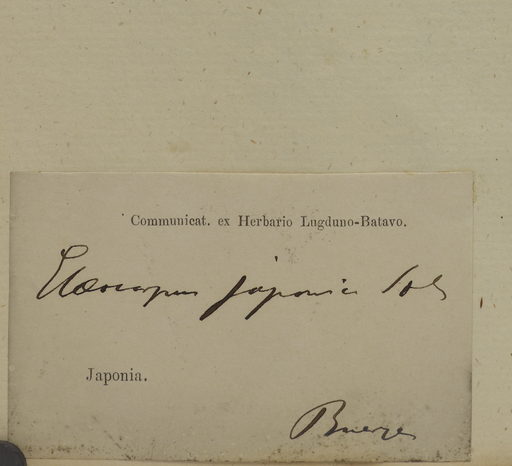 Communicat. ex Herbario Lugduno-Batavo.
Elæocarpus japonica Sieb
Japonia.
Buerger